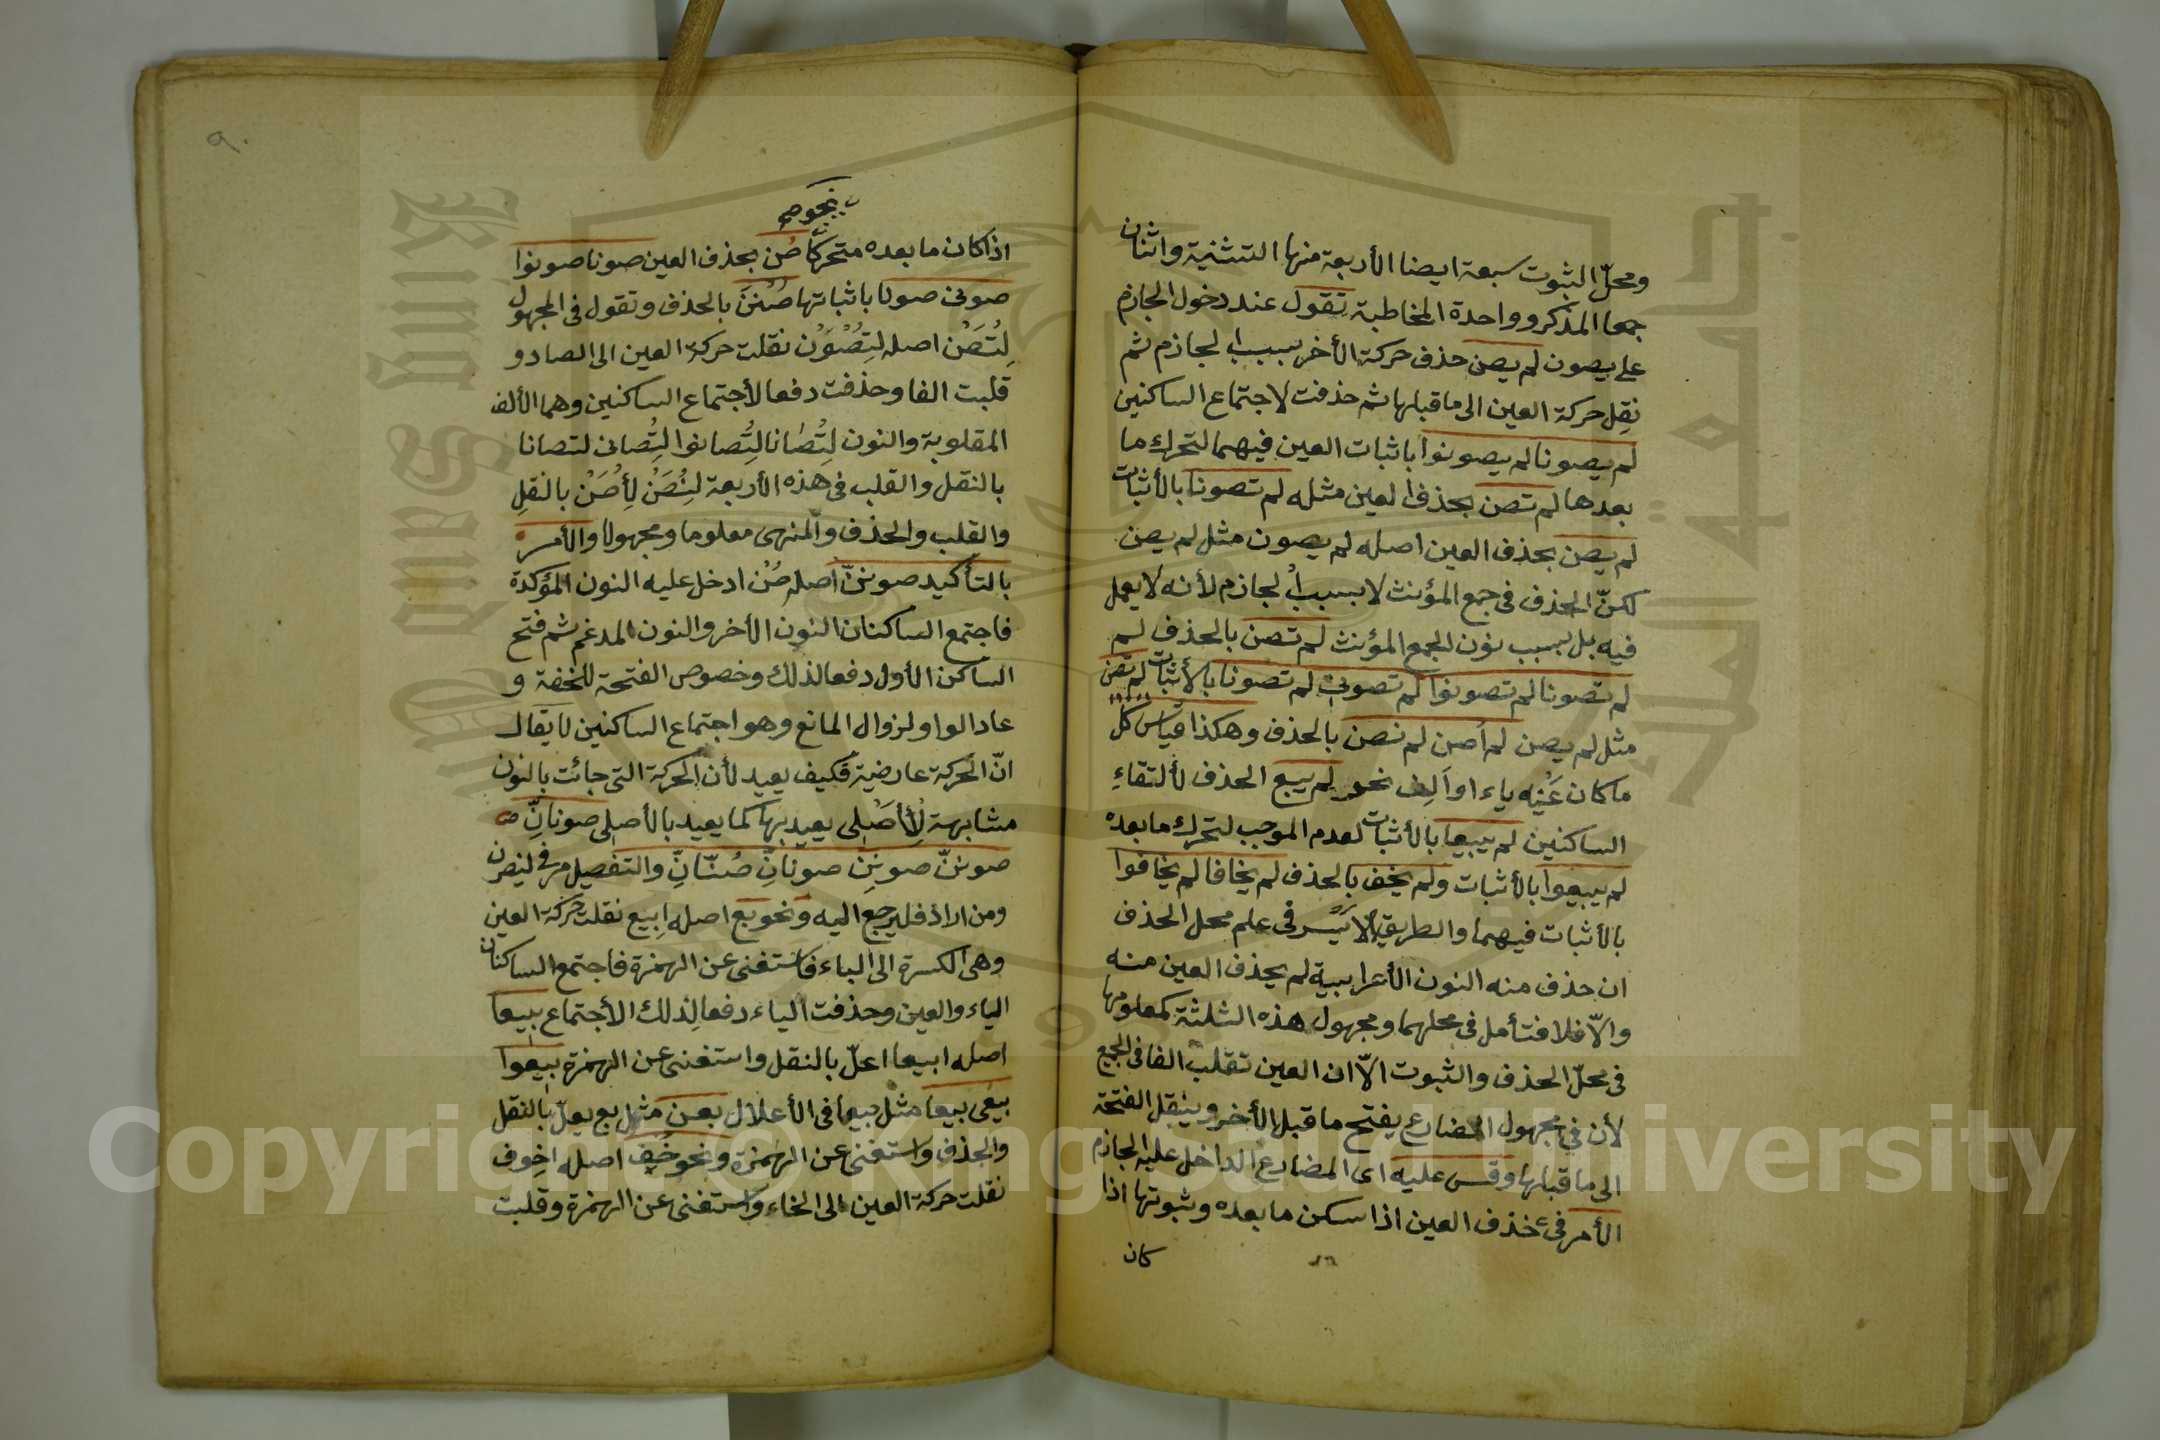 ومحلّ الثبوت سبعة ايضا الأربعة منها التثنية واثنان
جمعا المذكر وواحدة المخاطبة تقول عند دخول الجازم
على يصون لم يصن حذف حركة الأخر بسبب الجازم ثم
نقل حركة العين الى ما قبلها ثم حذفت لاجتماع الساكنين
لم يصونا لم يصونوا باثبات العين فيهما لتحرك ما
بعدها لم تصن بحذف العين مثله لم تصونا بالأثبات
لم يصن بحذف العين اصله لم يصون مثل لم يصن
لكنّ الحذف فى جمع المؤنث لا بسبب الجازم لأنه لا يعمل
فيه بل بسبب نون الجمع المؤنث لم تصن بالحذف لم
لم تصونا لم تصونوا لم تصونى لم تصونا بالأثبات لم تصن
مثل لم يصن لم اصن لم نصن بالحذف وهكذا قياس كل
ما كان عَيْنِه ياء او اَلِف نحو لم يبع الحذف لألتقاءِ
الساكنين لم يبيعا بالأثبات لعدم الموجب لتحرك ما بعده
لم يبيعوا بالأثبات ولم يخف بالحذف لم يخافا لم يخافوا
بالأثبات فيهما والطريق الاَيْسر فى علم محل الحذف
ان حذف منه النون الأعرابية لم يحذف العين منه
والّا فلا فتأمل فى محلهما ومجهول هذه الثلثة كمعلومها
فى محلّ الحذف والثبوت الّا ان العين تقلب الفا فى الجمع
لأن فى مجهول المضارع يفتح ما قبل الأخر وينقل الفتحة
الى ما قبلها وقس عليه اى المضارع الداخل عليه الجازم
الأمر فى حذف العين اذا سكن ما بعده وثبوتها اذا
كان
٩٠
نحو
اذا كان ما بعده متحركا صُن بحذف العين صونا صونوا
صونى صونا باثباتها صُنَّ بالحذف وتقول فى المجهول
لِتُصَنْ اصله لِتُصْوَنْ نقلت حركة العين الى الصاد و
قلبت الفا وحذفت دفعا لأجتماع الساكنين وهما الألف
المقلوبة والنون لِتُصَانا لِتُصانوا لِتُصانى لتصانا
بالنقل والقلب فى هذه الأربعة لِنُصَنْ لِأُصَنْ بالنقلِ
والقلب والحذف والمنهى معلوما ومجهولا والأمر
بالتأكيد صوننّ اصله صُنْ ادخل عليه النون المؤكدة
فاجتمع الساكنان النون الأخر والنون المدغم ثم فتح
الساكن الأول دفعا لذلك وخصوص الفتحة للخفة و
عاد الواو لزوال المانع وهو اجتماع الساكنين لا يقال
انّ الحركة عارضية فكيف يعيد لأن الحركة التى جائت بالنون
مشابهة لِلْأَصْلى يعيد بها كما يعيد بالأصلى صونانِّ
صوننّ صوننِّ صونانِّ صُنّانِّ والتفصيل مر فى لينصرن
ومن اراد فليرجع اليه ونحو بع اصله اِبيع نقلت حركة العين
وهى الكسرة الى الباء فاستغنى عن الهمزة فاجتمع الساكنان
الياء والعين وحذفت الياء دفعا لذلك الأجتماع بيعا
اصله ابيعا اعلّ بالنقل واستغنى عن الهمزة بيعوا
بيعى بيعا مثل بيعا فى الأعلال بعن مثل بع يعلّ بالنقل
والحذف واستغنى عن الهمزة ونحو خَف اصله اخوف
نقلت حركة العين الى الخاء واستغنى عن الهمزة وقلبت
King Saud University
جامعة الملك سعود
Copyright © King Saud University